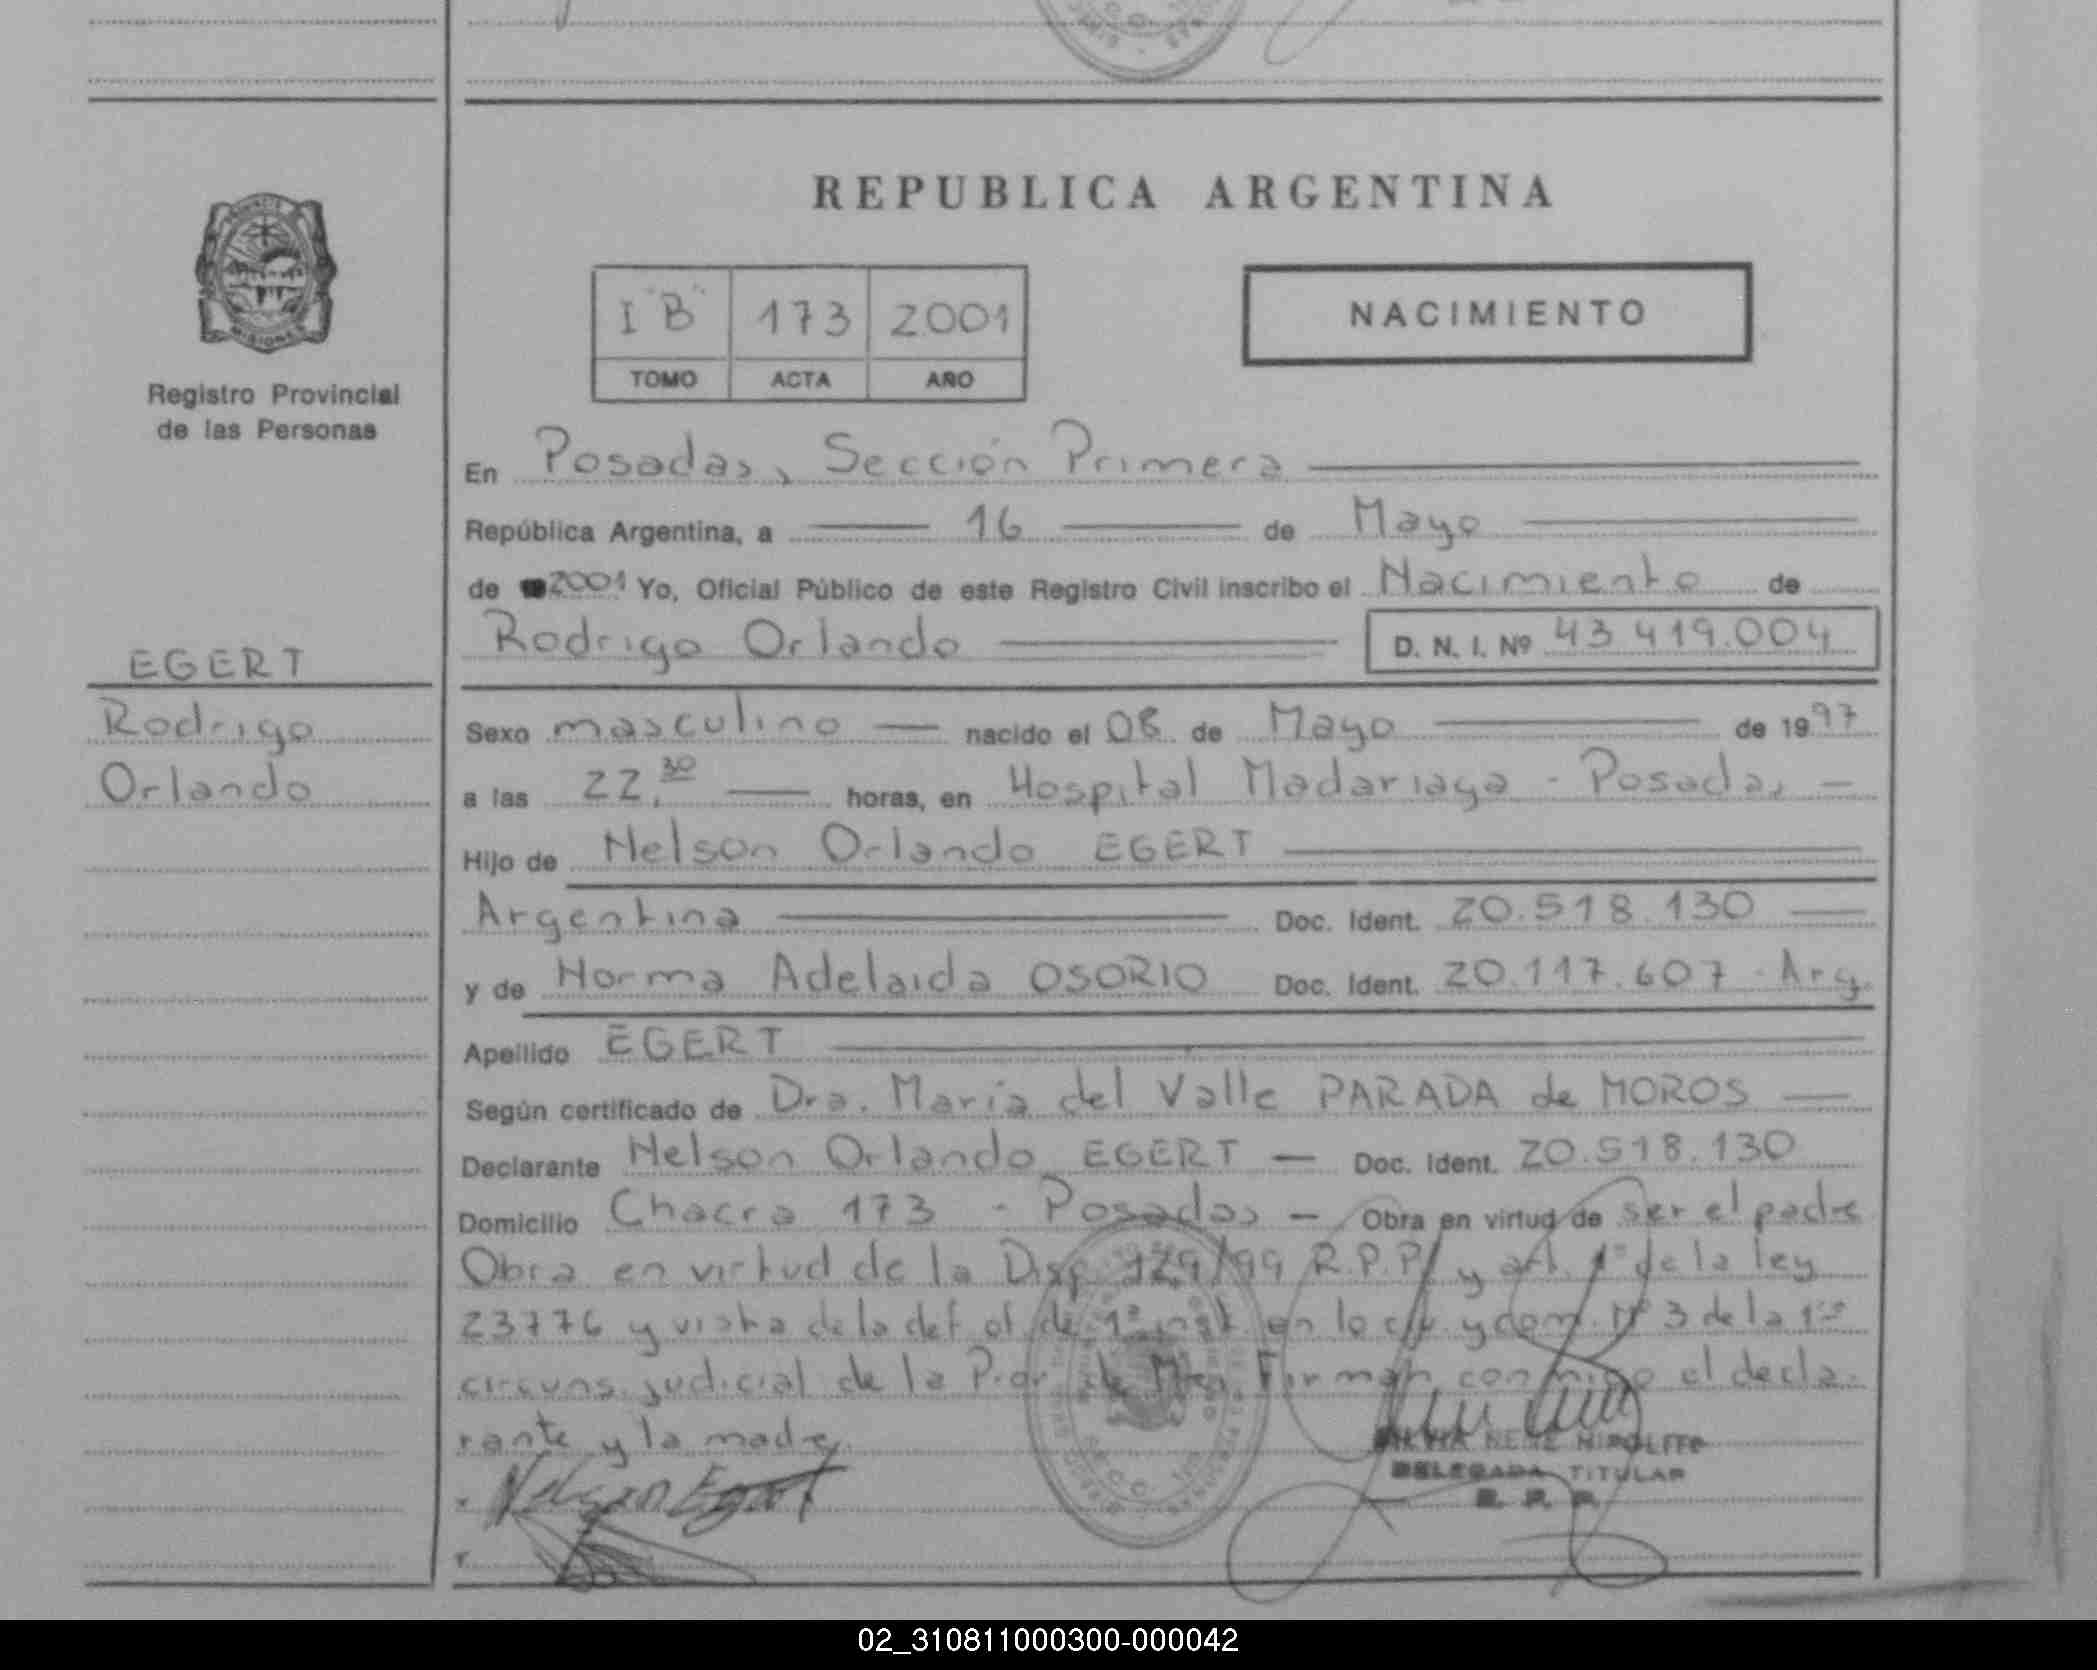 REPUBLICA ARGENTINA
I "B" 173 2001
TOMO ACTA AÑO
NACIMIENTO
MISIONES
Registro Provincial
de las Personas
En Posadas, Sección Primera
República Argentina, a 16 de Mayo
de 2001 Yo, Oficial Público de este Registro Civil inscribo el Nacimiento de
Rodrigo Orlando D. N. I. Nº 43 419.004
EGERT
Rodrigo
Orlando
Sexo masculino nacido el 08 de Mayo de 1997
a las 22,30 horas, en Hospital Madariaga - Posadas
Hijo de Nelson Orlando EGERT
Argentina Doc. Ident. 20.518.130
y de Norma Adelaida OSORIO Doc. Ident. 20.117.607 - Arg.
Apellido EGERT
Según certificado de Dra. María del Valle PARADA de MOROS
Declarante Nelson Orlando EGERT - Doc. Ident. 20.518.130
Domicilio Chacra 173 - Posadas - Obra en virtud de ser el padre
Obra en virtud de la Disp. 129/99 R.P.P. y art. 1º de la ley
23776 y vista de la def of de 1ª inst en lo civ y com. Nº 3 de la 1ra
circuns. judicial de la Firman conmigo el decla-
rante y la madre.
Nelson Egert
DELEGADA TITULAR
R. P. P.
02_310811000300-000042